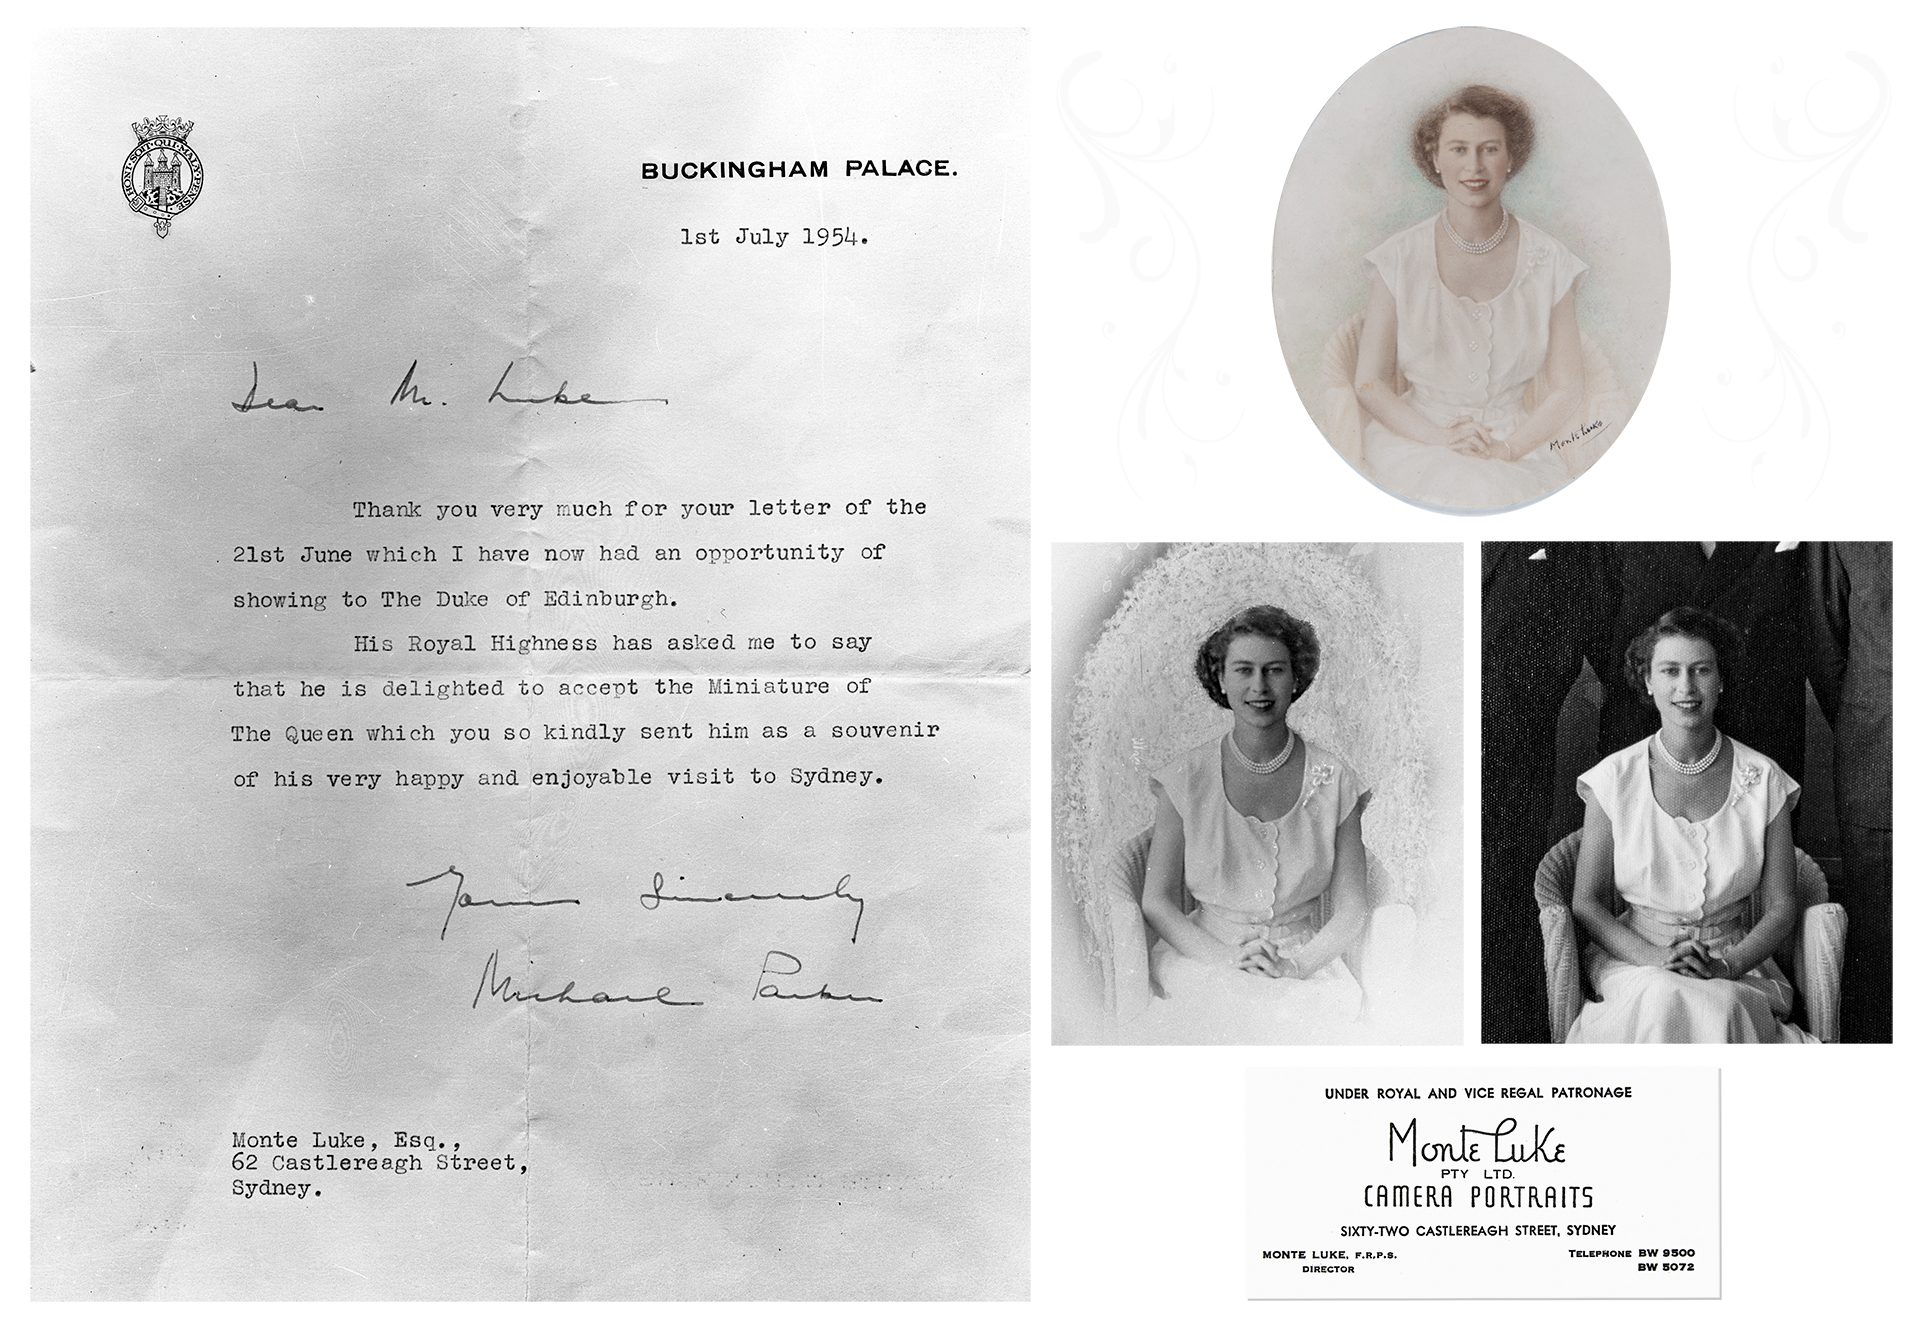 HONI·SOIT·QUI·MAL·Y·PENSE
BUCKINGHAM PALACE.
1st July 1954.
Dear Mr. Luke
Thank you very much for your letter of the
21st June which I have now had an opportunity of
showing to The Duke of Edinburgh.
His Royal Highness has asked me to say
that he is delighted to accept the Miniature of
The Queen which you so kindly sent him as a souvenir
of his very happy and enjoyable visit to Sydney.
Yours Sincerely
Michael Parker
Monte Luke, Esq.,
62 Castlereagh Street,
Sydney.
Monte Luke
UNDER ROYAL AND VICE REGAL PATRONAGE
Monte Luke
PTY LTD.
CAMERA PORTRAITS
SIXTY-TWO CASTLEREAGH STREET, SYDNEY
MONTE LUKE, F.R.P.S.
DIRECTOR
TELEPHONE BW 9500
BW 5072